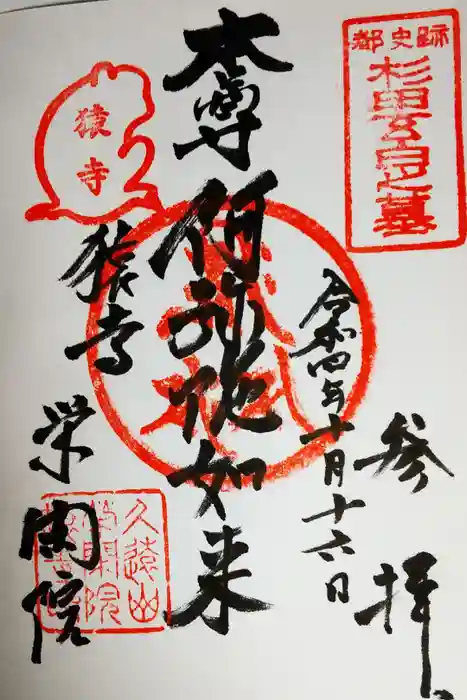 都史跡
杉田玄白之墓
参拝
令和四年十月十六日
本尊 阿弥陀如来
猿寺
猿寺
栄閑院
久遠山
栄閑院